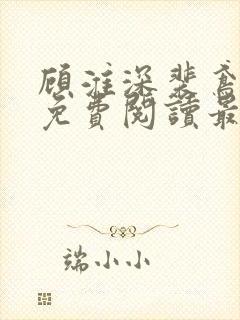 顾淮深裴乔
免费阅读最
端小小